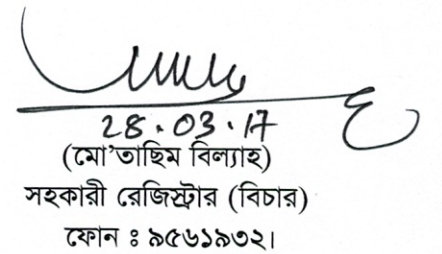 28.03.17
(মো'তাছিম বিল্যাহ)
সহকারী রেজিস্ট্রার (বিচার)
ফোন ঃ ৯৫৬১৯৩২।